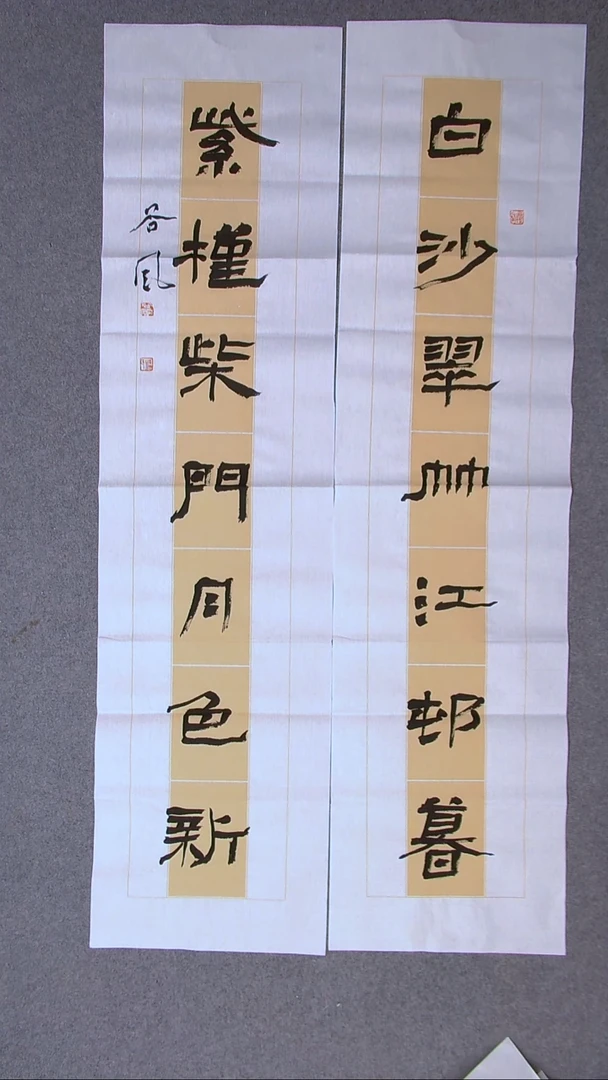 白沙翠竹江邨暮
紫槿柴門月色新
谷風